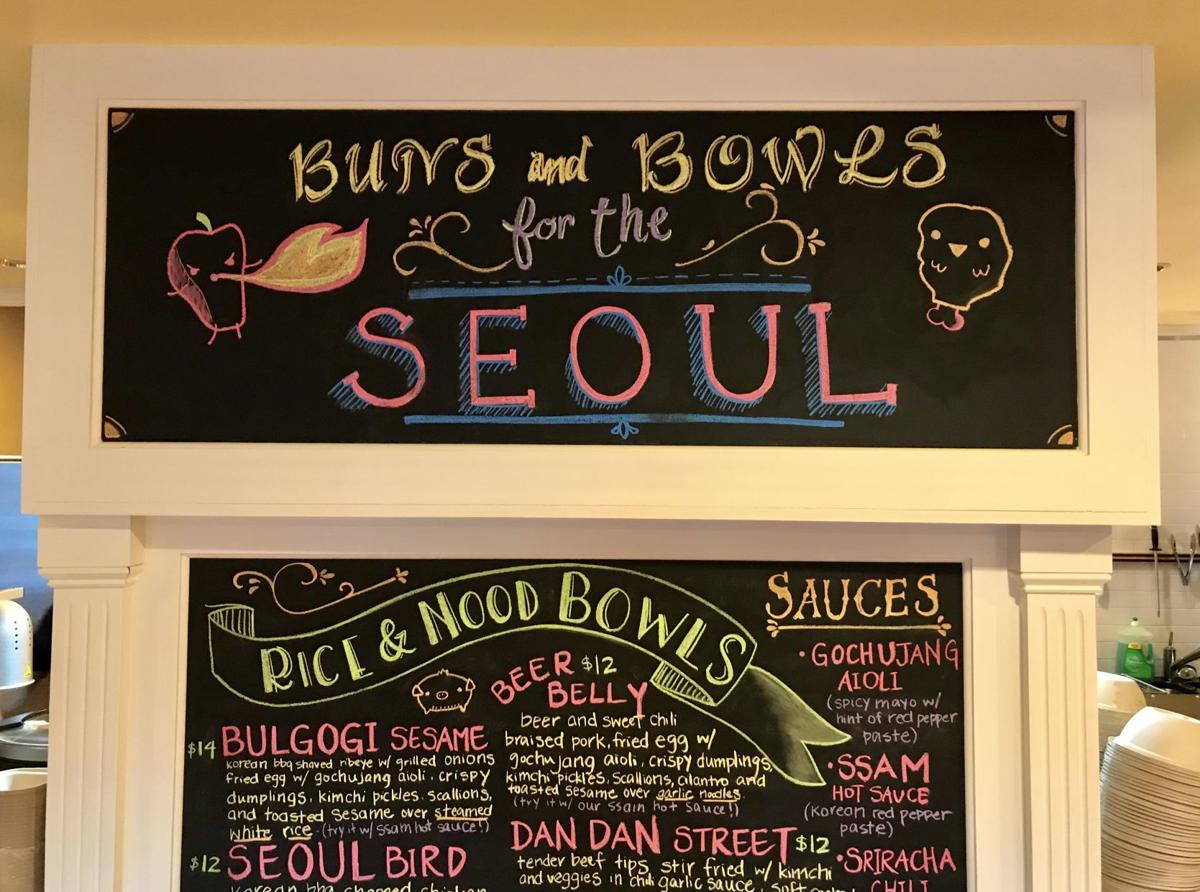 BUNS and BOWLS
for the
SEOUL
RICE & NOOD BOWLS
$14 BULGOGI SESAME
korean bbq shaved ribeye w/ grilled onions
fried egg w/ gochujang aioli, crispy
dumplings, kimchi pickles, scallions,
and toasted sesame over steamed
white rice - (try it w/ ssam hot sauce!)
$12 SEOUL BIRD
korean bbq chopped chicken
BEER $12
BELLY
beer and sweet chili
braised pork, fried egg w/
gochujang aioli, crispy dumplings,
kimchi pickles, scallions, cilantro and
toasted sesame over garlic noodles.
(try it w/ our ssam hot sauce!)
DAN DAN STREET $12
tender beef tips, stir fried w/ kimchi
and veggies in chili garlic sauce, soft
SAUCES
• GOCHUJANG
AIOLI
(spicy mayo w/
hint of red pepper
paste)
• SSAM
HOT SAUCE
(Korean red pepper
paste)
• SRIRACHA
CHILI